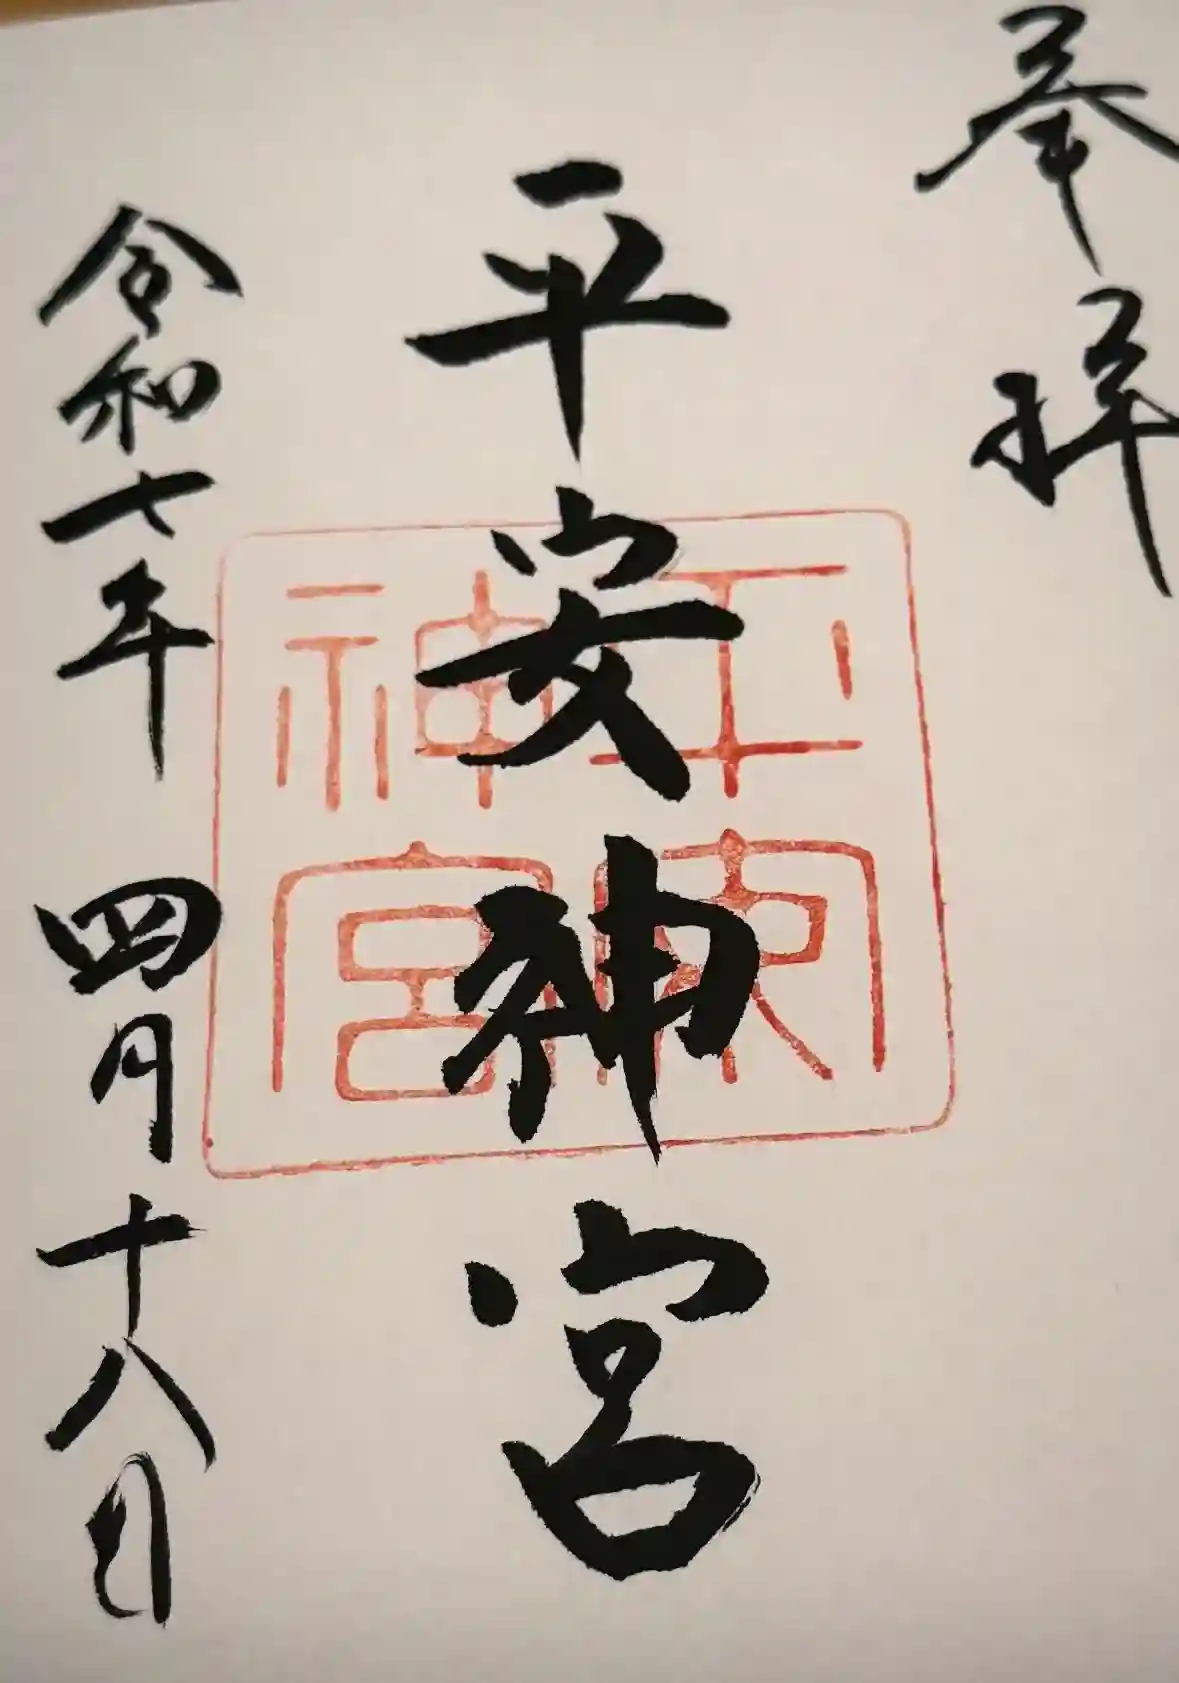 奉拝
平安神宮
平安神宮
令和七年 四月十八日